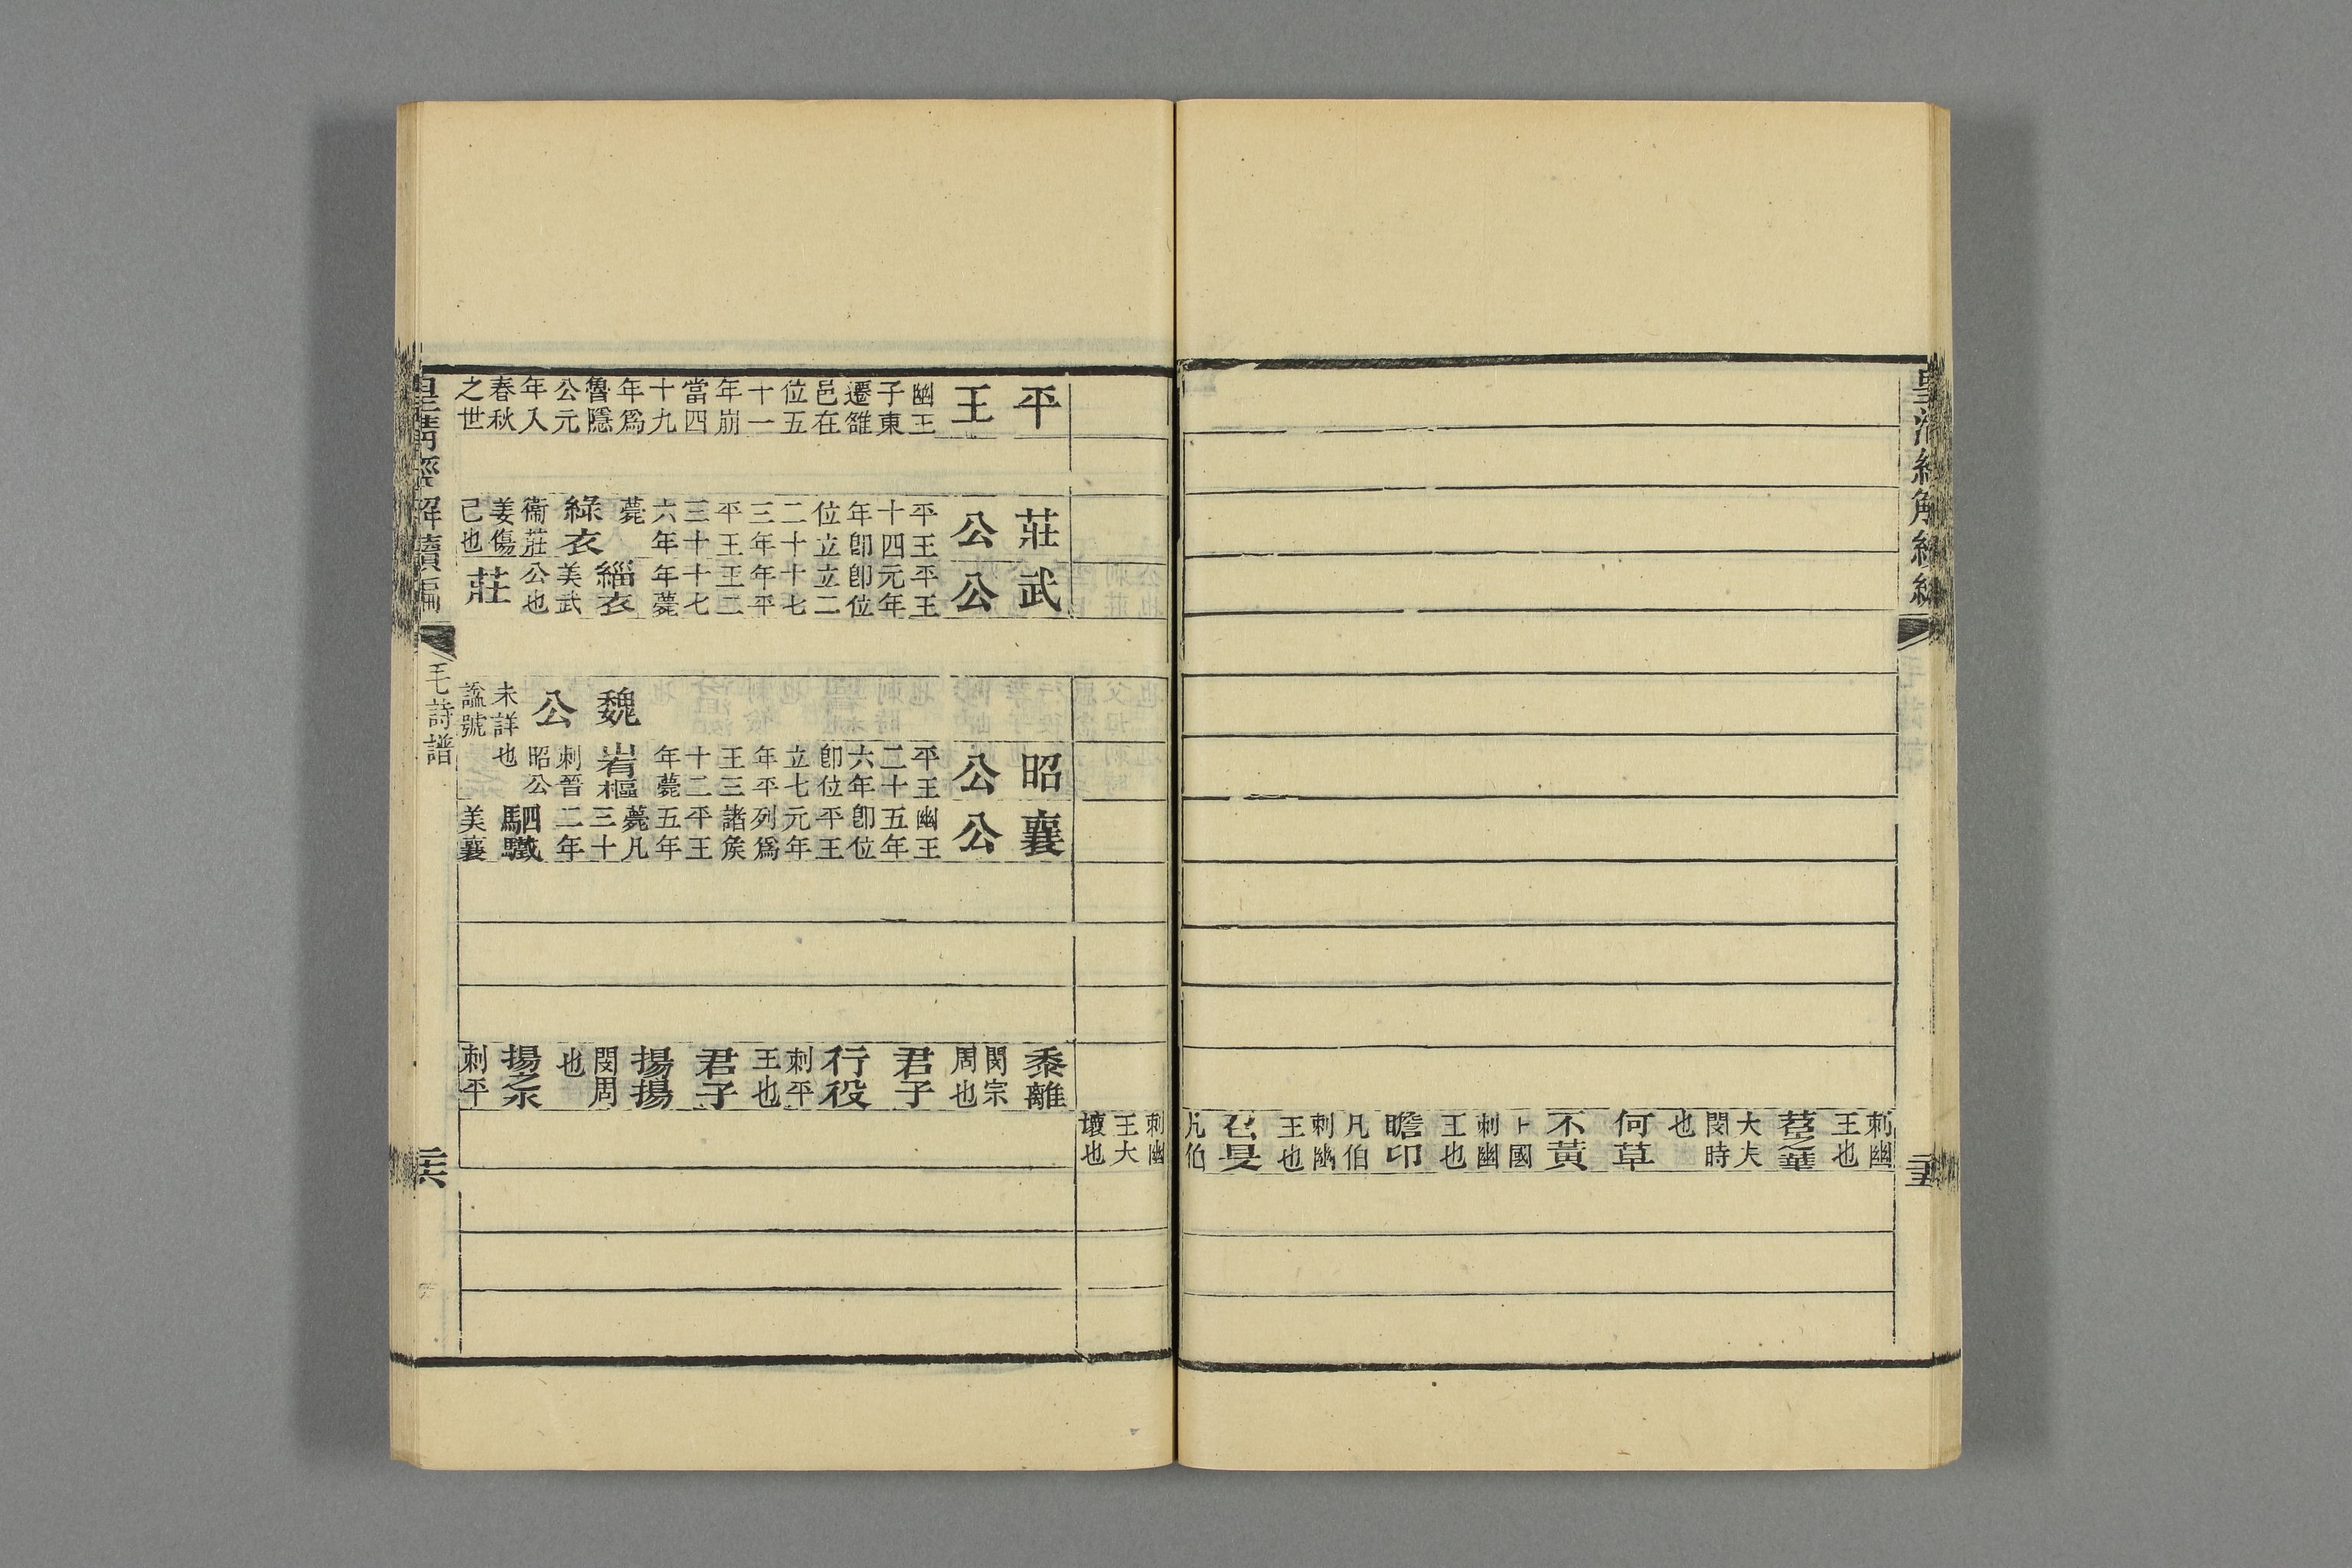 皇清經解續編
刺幽王也苕之華大夫閔時也何草不黃下國刺幽王也瞻卬凡伯刺幽王也召旻凡伯
刺幽王大壞也
平王幽王子東遷雒邑在位五十一年崩當四十九年爲魯隱公元年入春秋之世
莊公平王十四年卽位立二十三年平王三十六年薨綠衣衞莊姜傷己也
武公平王元年卽位立二十七年平王二十七年薨緇衣美武公也莊
魏公未詳諡號
昭公平王二十六年卽位立七年平王三十二年薨山有樞刺晉昭公也
襄公幽王五年卽位平王元年列爲諸矦平王五年薨凡三十二年駟驖美襄
黍離閔宗周也君子行役刺平王也君子揚揚閔周也揚之水刺平
皇清經解續編
毛詩譜
二十六